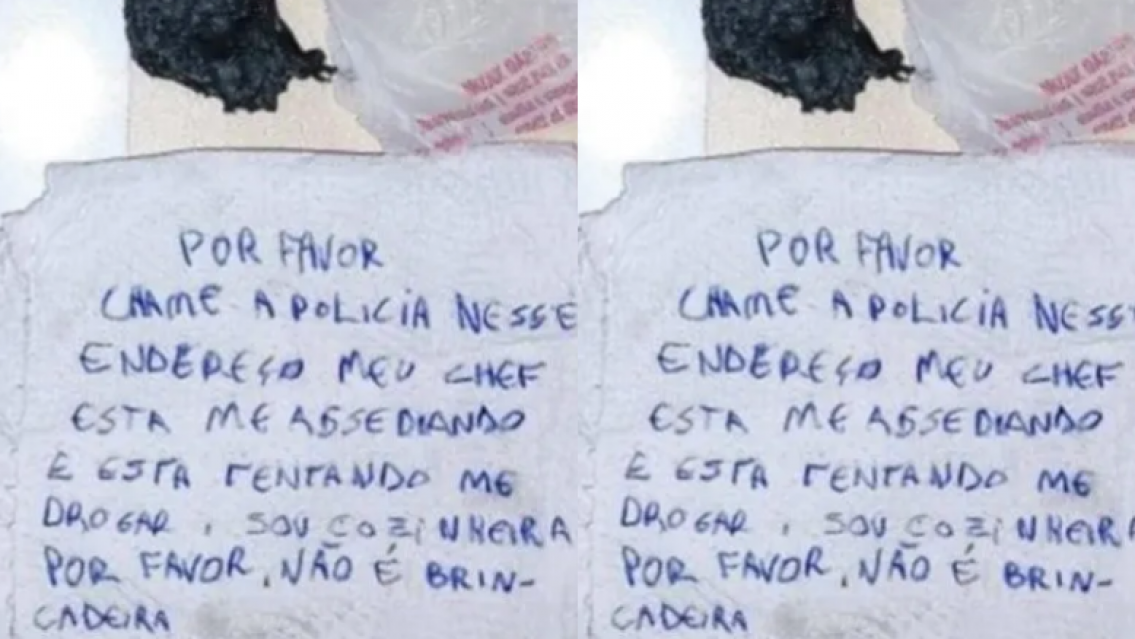 POR FAVOR
CHAME A POLICIA NESSE
ENDEREÇO MEU CHEF
ESTA ME ASSEDIANDO
E ESTA TENTANDO ME
DROGAR, SOU COZINHEIRA
POR FAVOR, NÃO É BRIN-
CADEIRA
POR FAVOR
CHAME A POLICIA NESS
ENDEREÇO MEU CHEF
ESTA ME ASSEDIANDO
E ESTA TENTANDO ME
DROGAR, SOU COZINHEIRA
POR FAVOR, NÃO É BRIN-
CADEIRA